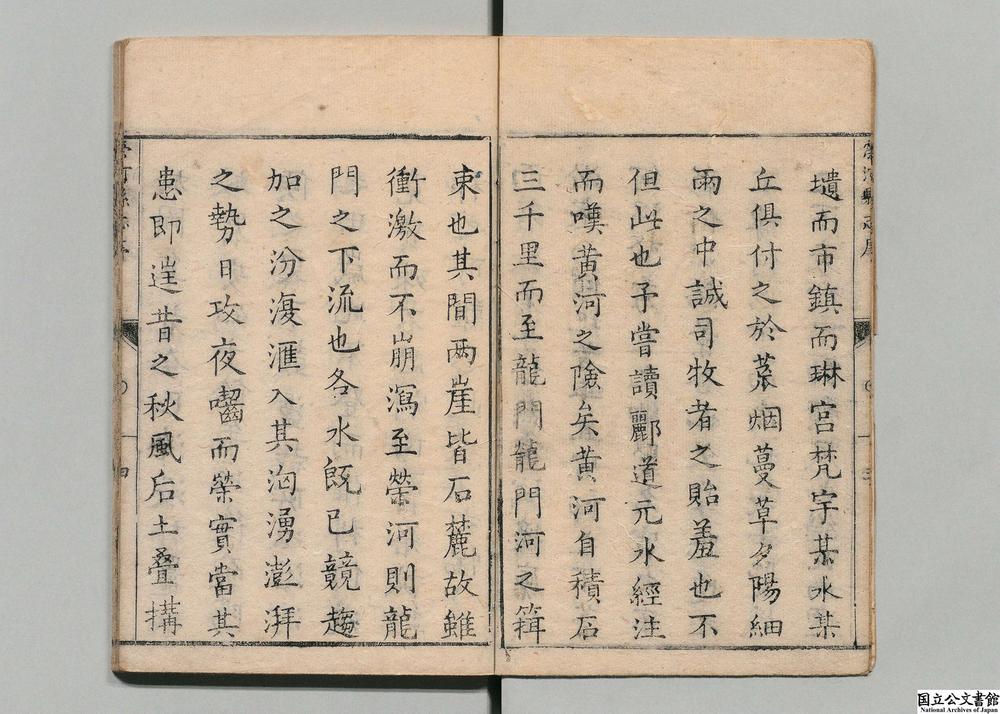 墳而市鎮而琳宮梵宇某水某
丘俱付之於荒烟蔓草夕陽細
雨之中誠司牧者之貽羞也不
但此也予嘗讀酈道元水經注
而嘆黃河之險矣黃河自積石
三千里而至龍門龍門河之箝
束也其間兩崖皆石麓故雖
衝激而不崩瀉至榮河則龍
門之下流也各水既已競趨
加之汾澓滙入其洶湧澎湃
之勢日攻夜齧而榮實當其
患即逞昔之秋風后土疊搆
榮河縣志序
三
榮河縣志序
四
国立公文書館
National Archives of Japan